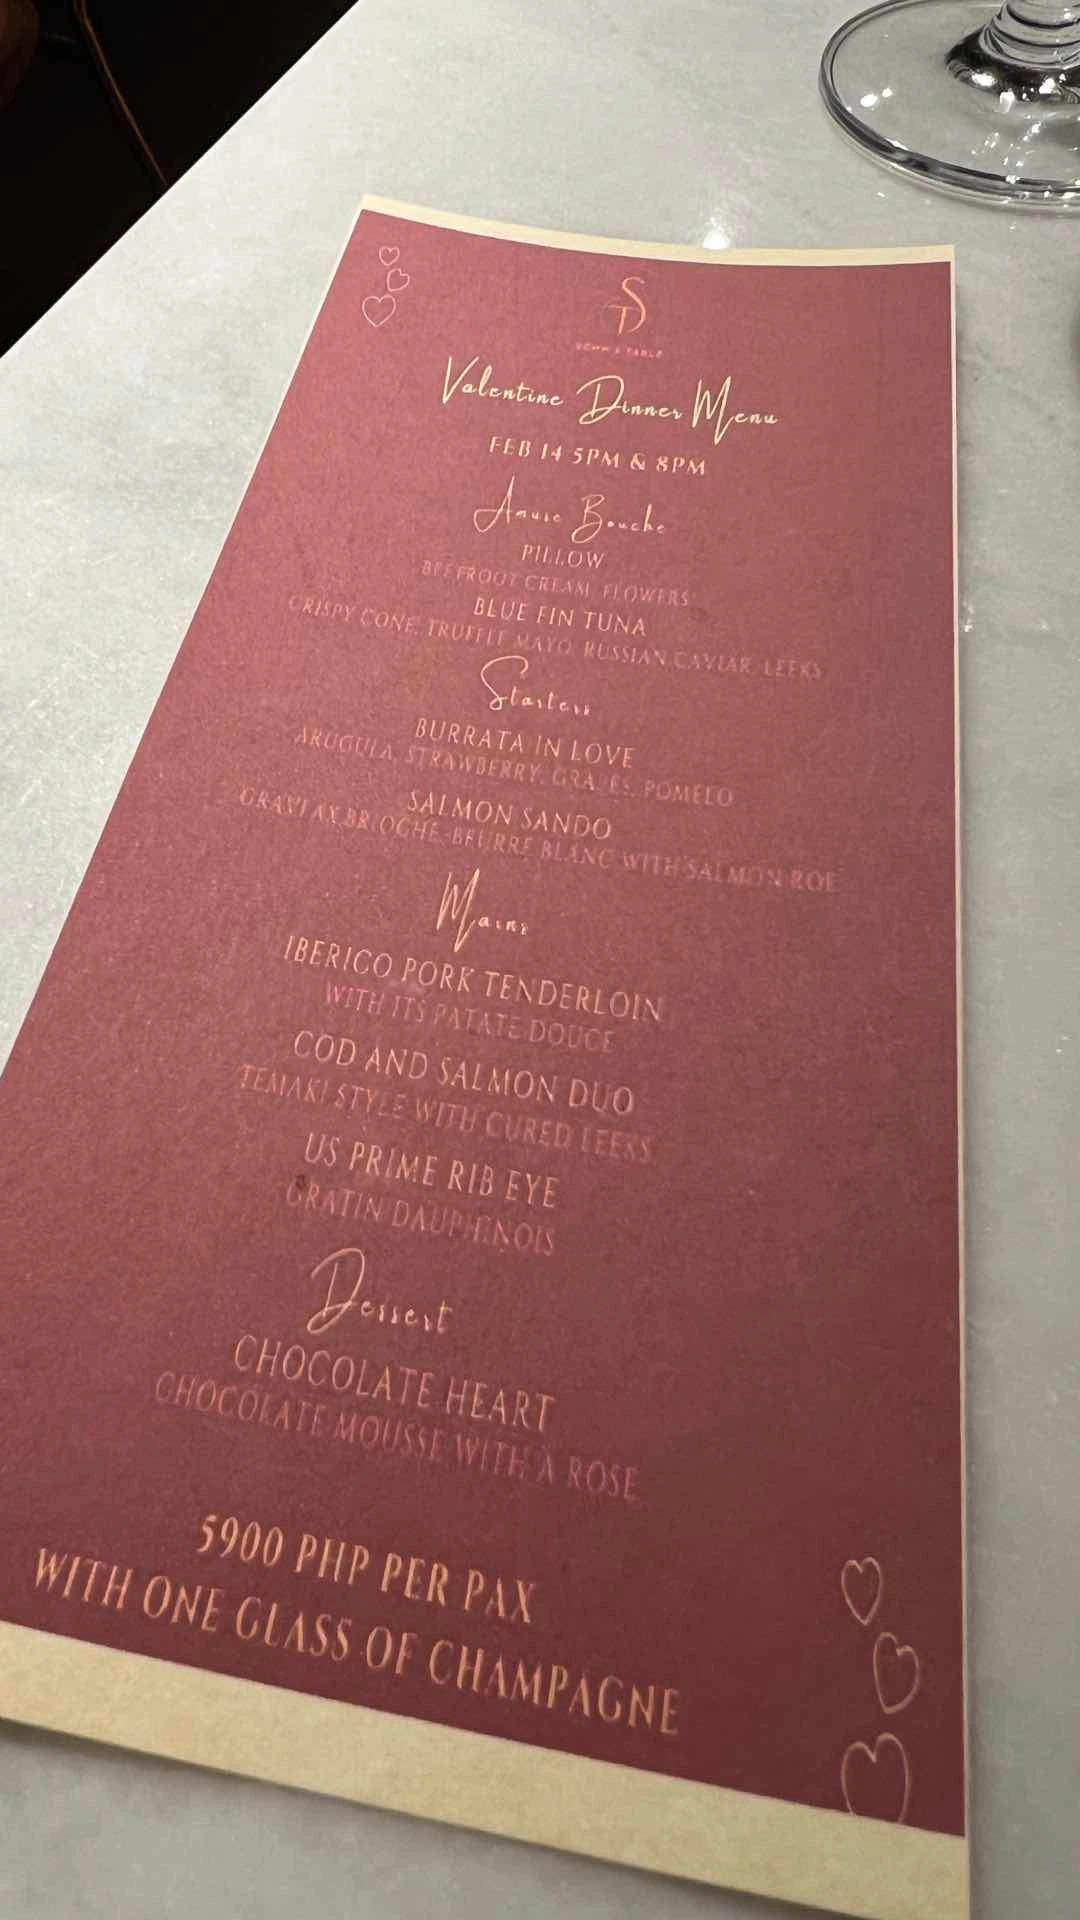 ST
SOMM'S TABLE
Valentine Dinner Menu
FEB 14 5PM & 8PM
Amuse Bouche
PILLOW
BEETROOT CREAM, FLOWERS
BLUE FIN TUNA
CRISPY CONE, TRUFFLE MAYO, RUSSIAN CAVIAR, LEEKS
Starters
BURRATA IN LOVE
ARUGULA, STRAWBERRY, GRAPES, POMELO
SALMON SANDO
GRAVLAX BRIOCHE, BEURRE BLANC WITH SALMON ROE
Mains
IBERICO PORK TENDERLOIN
WITH ITS PATATE DOUCE
COD AND SALMON DUO
TEMAKI STYLE WITH CURED LEEKS
US PRIME RIB EYE
GRATIN DAUPHINOIS
Dessert
CHOCOLATE HEART
CHOCOLATE MOUSSE WITH A ROSE
5900 PHP PER PAX
WITH ONE GLASS OF CHAMPAGNE